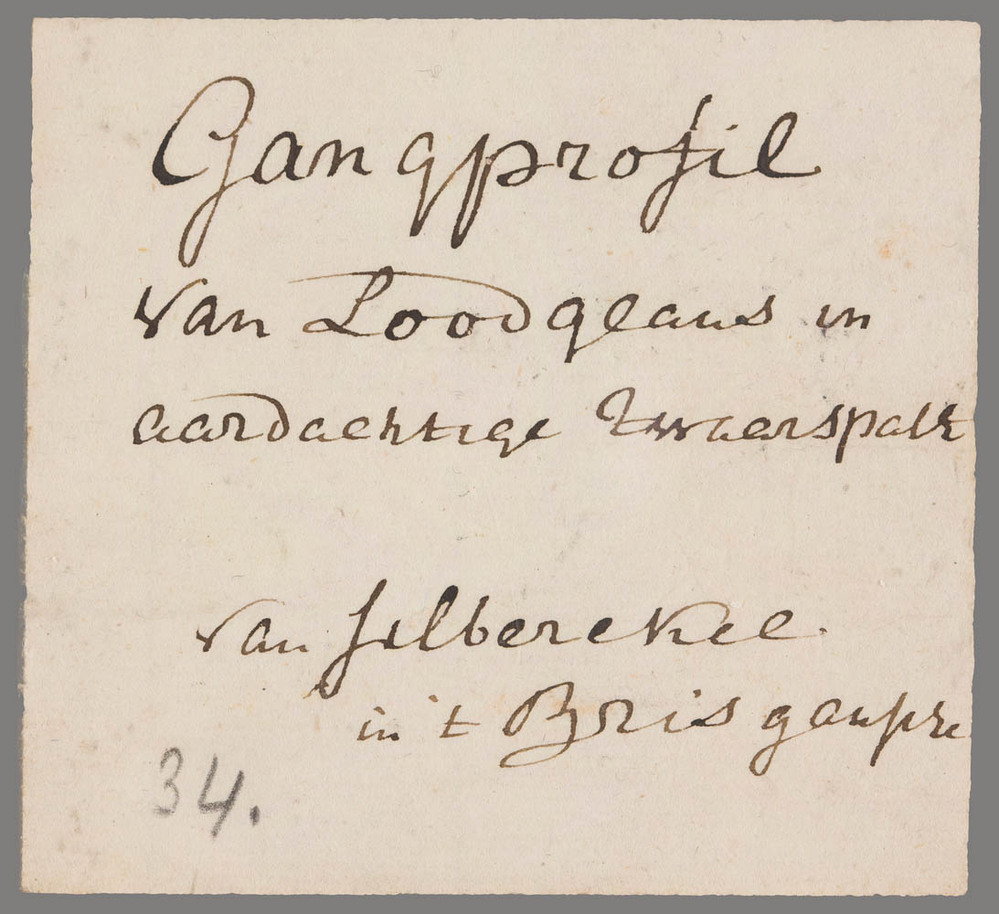 Gangprofil
van Loodglans in
aardachtige Zwaarspath
van Silbereckel
in 't Brisgausche
34.